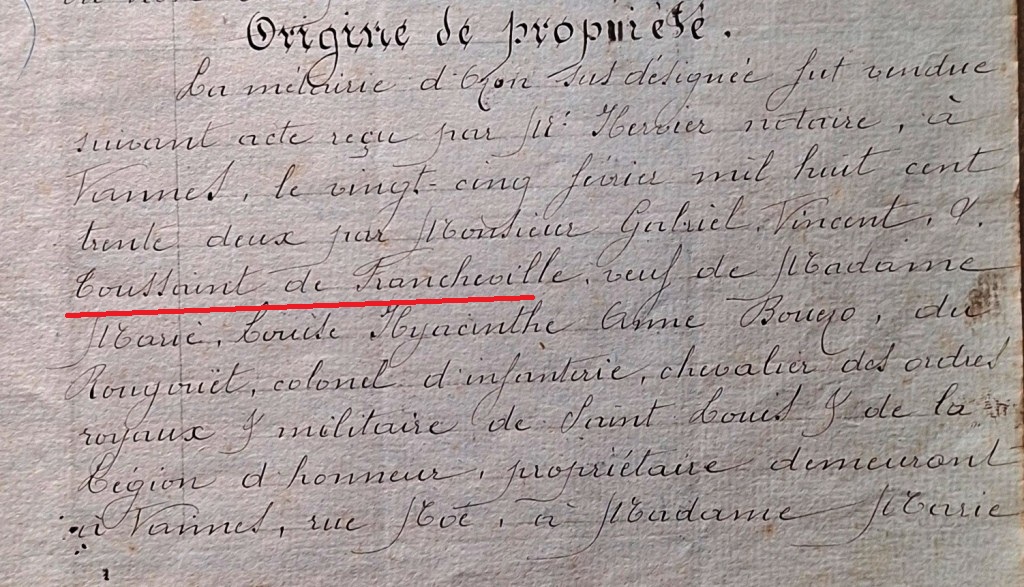 Origine de propriété.
La métairie d'Ozon sus désignée fut vendue
suivant acte reçu par Me Hervier notaire, à
Vannes, le vingt-cinq février mil huit cent
trente deux par Monsieur Gabriel, Vincent, &
Toussaint de Francheville, veuf de Madame
Marie, Louise Hyacinthe Anne Bouczo, du
Rongouët, colonel d'infanterie, chevalier des ordres
royaux & militaire de Saint Louis & de la
Légion d'honneur, propriétaire demeurant
à Vannes, rue Noé, à Madame Marie